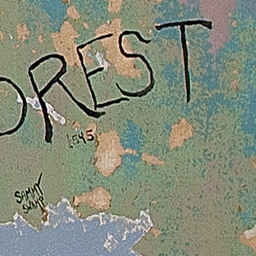 OREST
1545
SAMMY
SWAMP